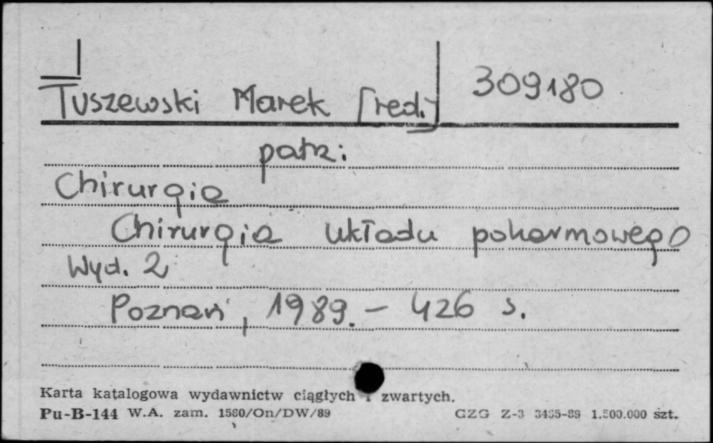 Tuszewski Marek [red.] 309180
patrz:
Chirurgia
Chirurgia układu pokarmowego
Wyd. 2
Poznań, 1989. - 426 s.
Karta katalogowa wydawnictw ciągłych i zwartych.
Pu-B-144 W.A. zam. 1560/On/DW/89 CZG Z-3 3435-89 1.500.000 szt.